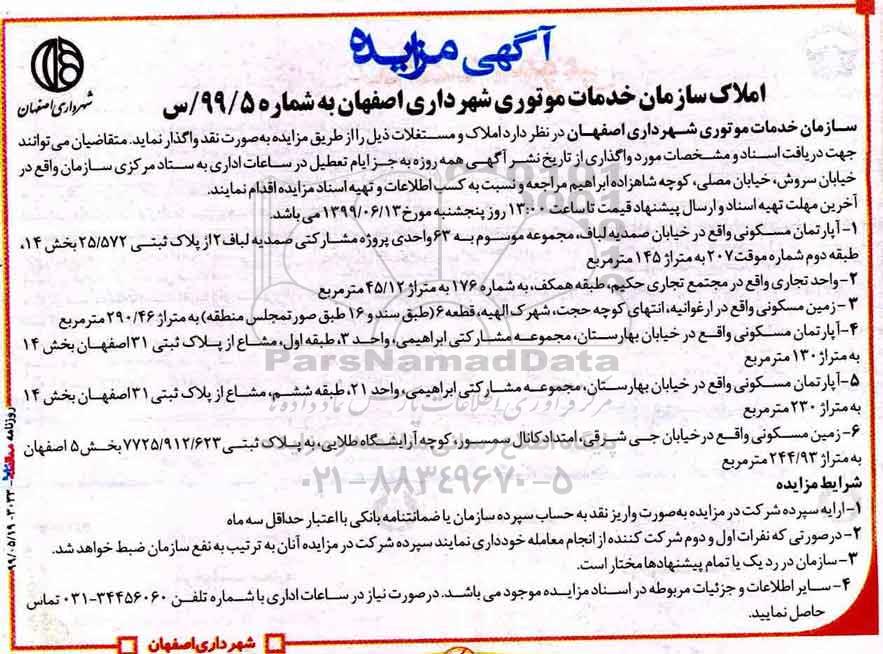 آگهی مزایده
شهرداری اصفهان
املاک سازمان خدمات موتوری شهرداری اصفهان به شماره ۹۹/۵/س
سازمان خدمات موتوری شهرداری اصفهان در نظر دارد املاک و مستغلات ذیل را از طریق مزایده به صورت نقد واگذار نماید. متقاضیان می توانند
جهت دریافت اسناد و مشخصات مورد واگذاری از تاریخ نشر آگهی همه روزه به جز ایام تعطیل در ساعات اداری به ستاد مرکزی سازمان واقع در
خیابان سروش، خیابان مصلی، کوچه شاهزاده ابراهیم مراجعه و نسبت به کسب اطلاعات و تهیه اسناد مزایده اقدام نمایند.
آخرین مهلت تهیه اسناد و ارسال پیشنهاد قیمت تا ساعت ۱۳:۰۰ روز پنجشنبه مورخ ۱۳۹۹/۰۶/۱۳ می باشد.
۱- آپارتمان مسکونی واقع در خیابان صمدیه لباف، مجموعه موسوم به ۶۳ واحدی پروژه مشارکتی صمدیه لباف ۲ از پلاک ثبتی ۲۵/۵۷۲ بخش ۱۴،
طبقه دوم شماره موقت ۲۰۷ به متراژ ۱۴۵ مترمربع
۲- واحد تجاری واقع در مجتمع تجاری حکیم، طبقه همکف، به شماره ۱۷۶ به متراژ ۴۵/۱۲ مترمربع
۳- زمین مسکونی واقع در ارغوانیه، انتهای کوچه حجت، شهرک الهیه، قطعه ۶ (طبق سند و ۱۶ طبق صورتمجلس منطقه) به متراژ ۲۹۰/۴۶ مترمربع
۴- آپارتمان مسکونی واقع در خیابان بهارستان، مجموعه مشارکتی ابراهیمی، واحد ۳، طبقه اول، مشاع از پلاک ثبتی ۳۱ اصفهان بخش ۱۴
به متراژ ۱۳۰ مترمربع
ParsNamadData
۵- آپارتمان مسکونی واقع در خیابان بهارستان، مجموعه مشارکتی ابراهیمی، واحد ۲۱، طبقه ششم، مشاع از پلاک ثبتی ۳۱ اصفهان بخش ۱۴
به متراژ ۲۳۰ مترمربع
مرکز فرآوری اطلاعات پارس نماد داده ها
۶- زمین مسکونی واقع در خیابان جی شرقی، امتداد کانال سمسور، کوچه آرایشگاه طلایی، به پلاک ثبتی ۷۷۲۵/۹۱۲/۶۲۳ بخش ۵ اصفهان
به متراژ ۲۴۴/۹۳ مترمربع
۰۲۱-۸۸۳۴۹۶۷۰-۵
شرایط مزایده
۱- ارایه سپرده شرکت در مزایده به صورت واریز نقد به حساب سپرده سازمان یا ضمانتنامه بانکی با اعتبار حداقل سه ماه
۲- در صورتی که نفرات اول و دوم شرکت کننده از انجام معامله خودداری نمایند سپرده شرکت در مزایده آنان به ترتیب به نفع سازمان ضبط خواهد شد.
۳- سازمان در رد یک یا تمام پیشنهادها مختار است.
۴- سایر اطلاعات و جزئیات مربوطه در اسناد مزایده موجود می باشد. در صورت نیاز در ساعات اداری با شماره تلفن ۳۴۴۵۶۰۶۰-۰۳۱ تماس
حاصل نمایید.
شهرداری اصفهان
روزنامه
۹۹/۰۵/۱۹